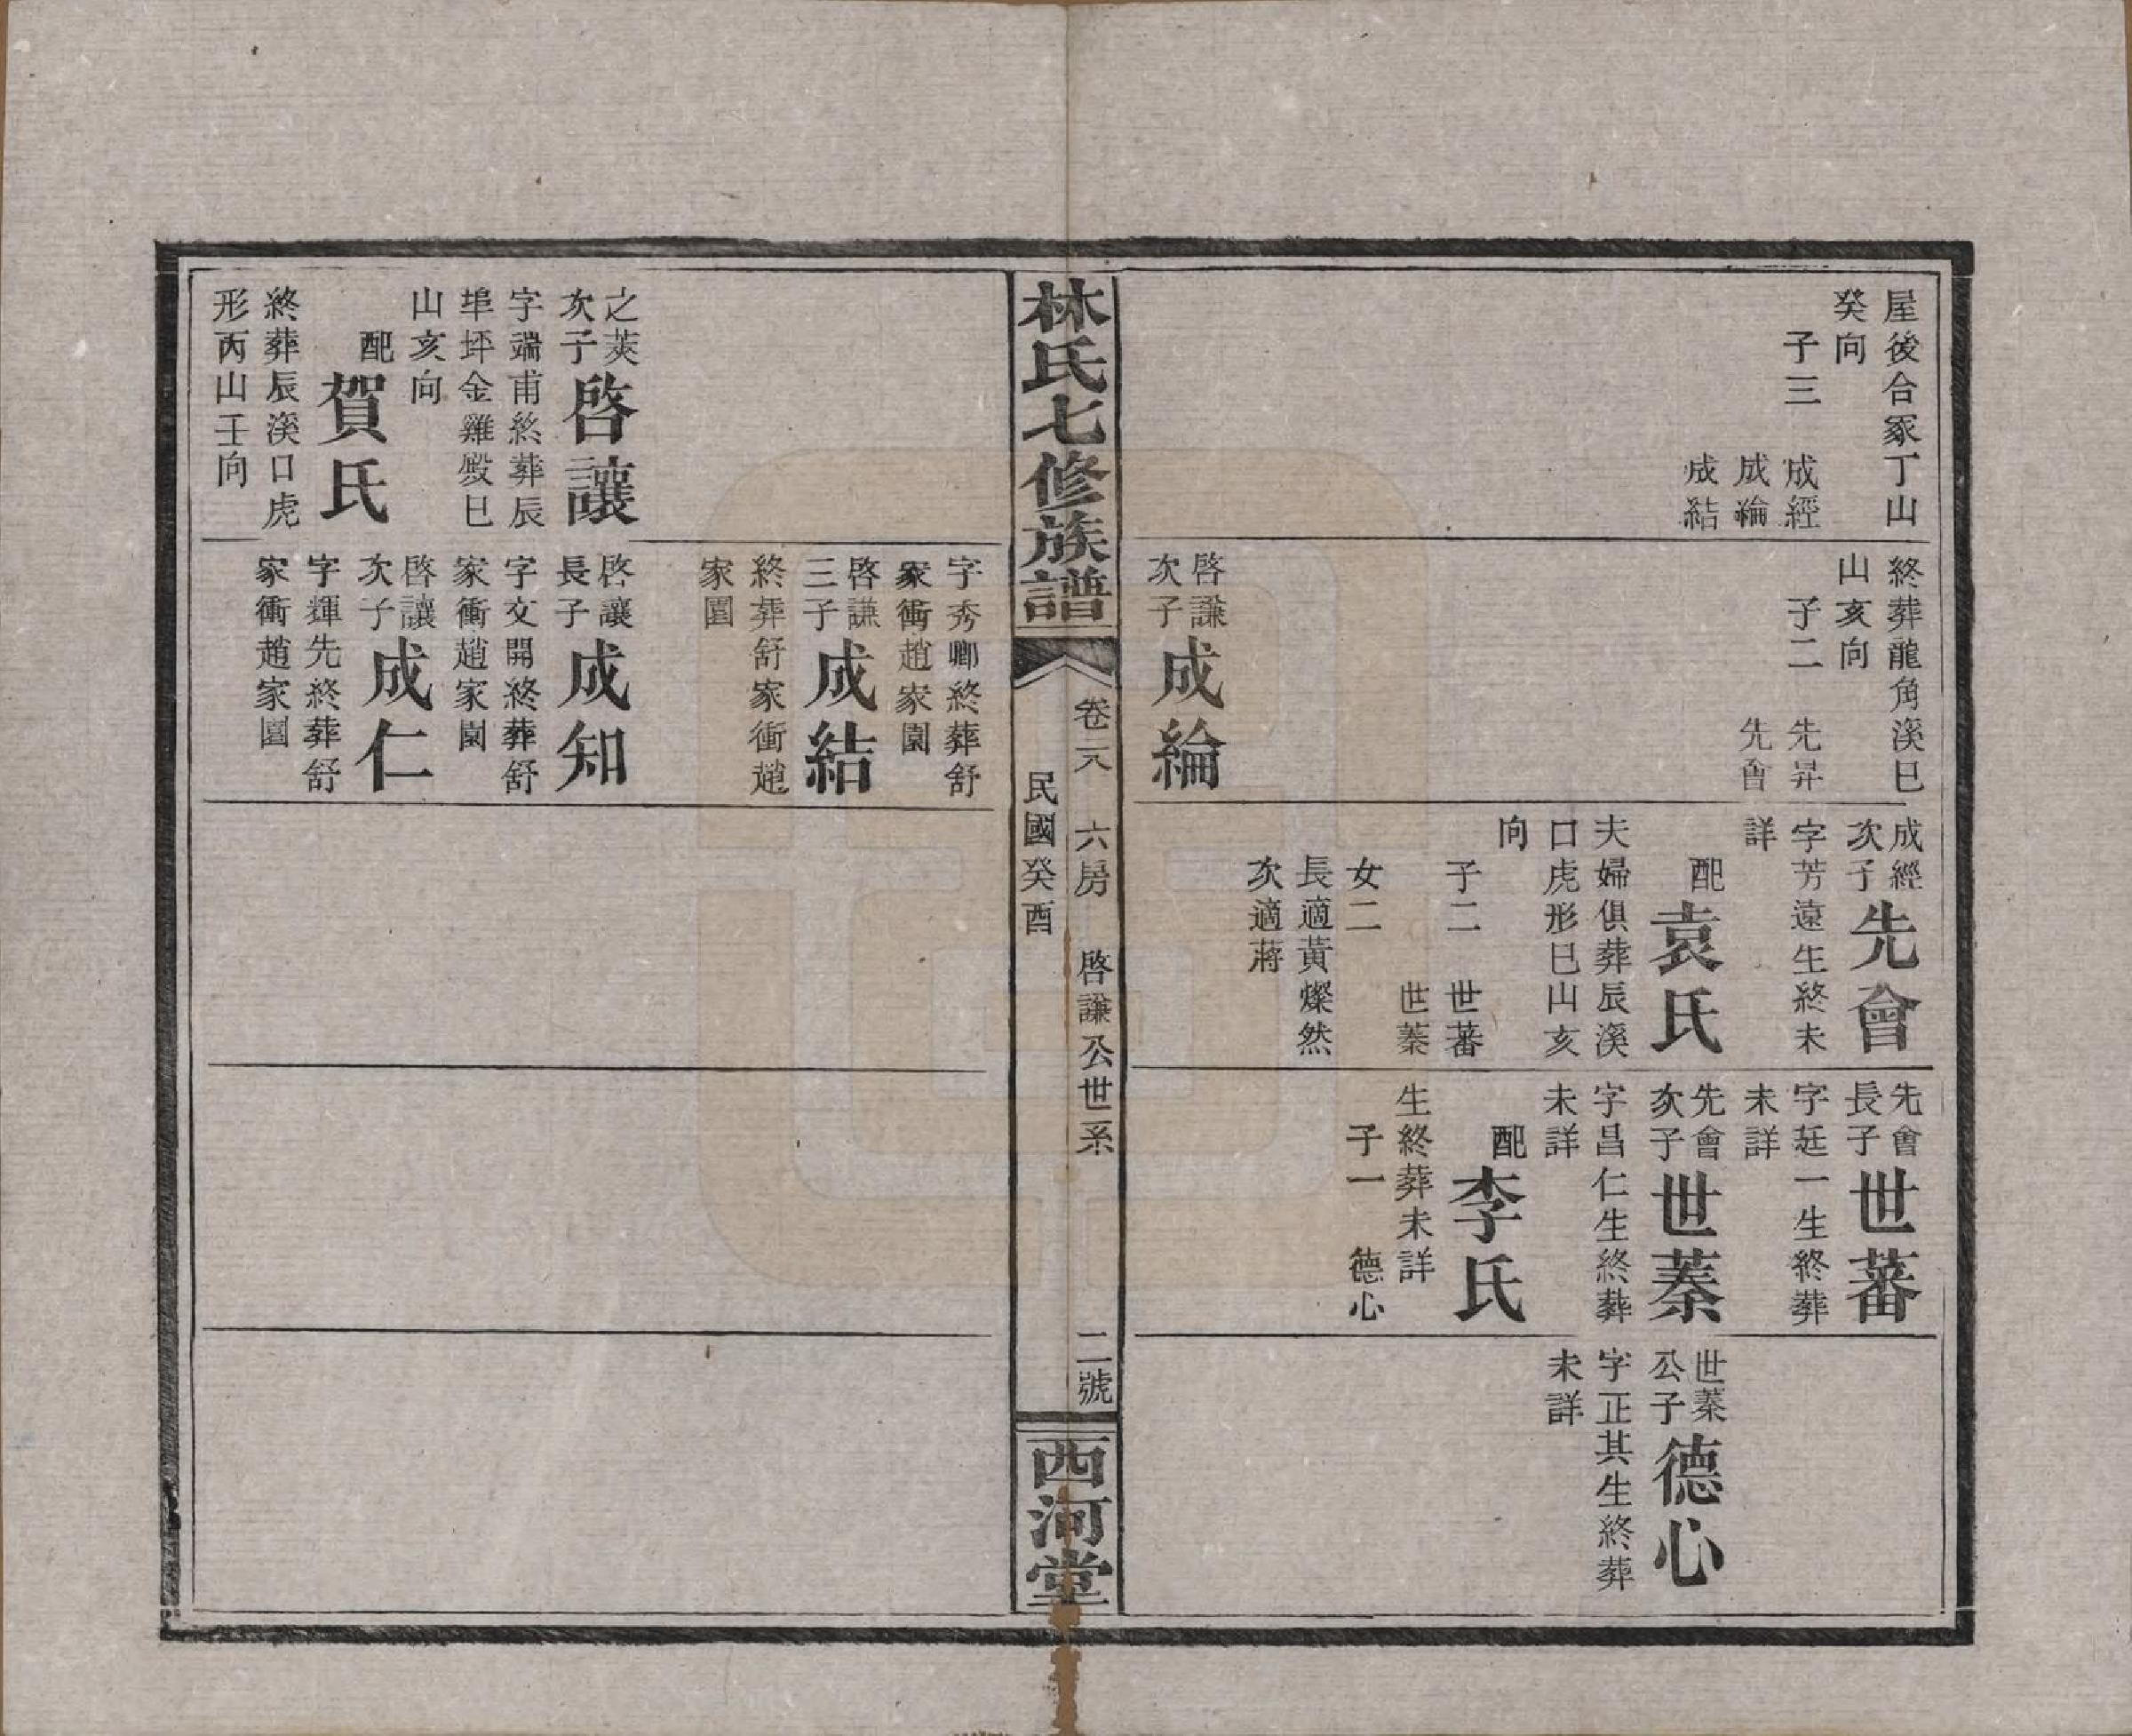 屋後合冢丁山
癸向
子三
成經
成綸
成結
終葬龍角溪巳
山亥向
子二
先昇
先會
啓謙
次子
成綸
成經
次子
先會
字芳遠生終未
詳
配
袁氏
夫婦俱葬辰溪
口虎形巳山亥
向
子二
世蕃
世蓁
女二
長適黃燦然
次適蔣
先會
長子
世蕃
字廷一生終葬
未詳
先會
次子
世蓁
字昌仁生終葬
未詳
配
李氏
生終葬未詳
子一
德心
世蓁
公子
德心
字正其生終葬
未詳
林氏七修族譜
卷二八
六房
啓謙公世系
二號
民國癸酉
西河堂
之莢
次子
啓讓
字端甫終葬辰
埠坪金雞殿巳
山亥向
配
賀氏
終葬辰溪口虎
形丙山壬向
字秀卿終葬舒
家衝趙家園
啓謙
三子
成結
終葬舒家衝趙
家園
啓讓
長子
成知
字文開終葬舒
家衝趙家園
啓讓
次子
成仁
字輝先終葬舒
家衝趙家園